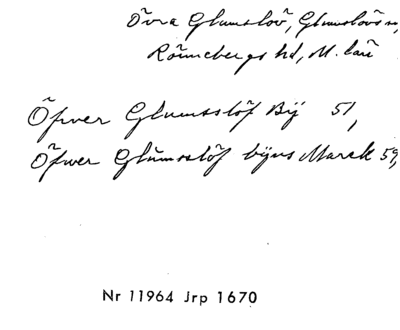 Övra Glumslöv, Glumslövs sn,
Rönnebergs hd, M. län
Öfwer Glumsslöf Bÿ 51,
Öfwer Glŭmsslöf bÿns Marck 59,
Nr 11964 Jrp 1670